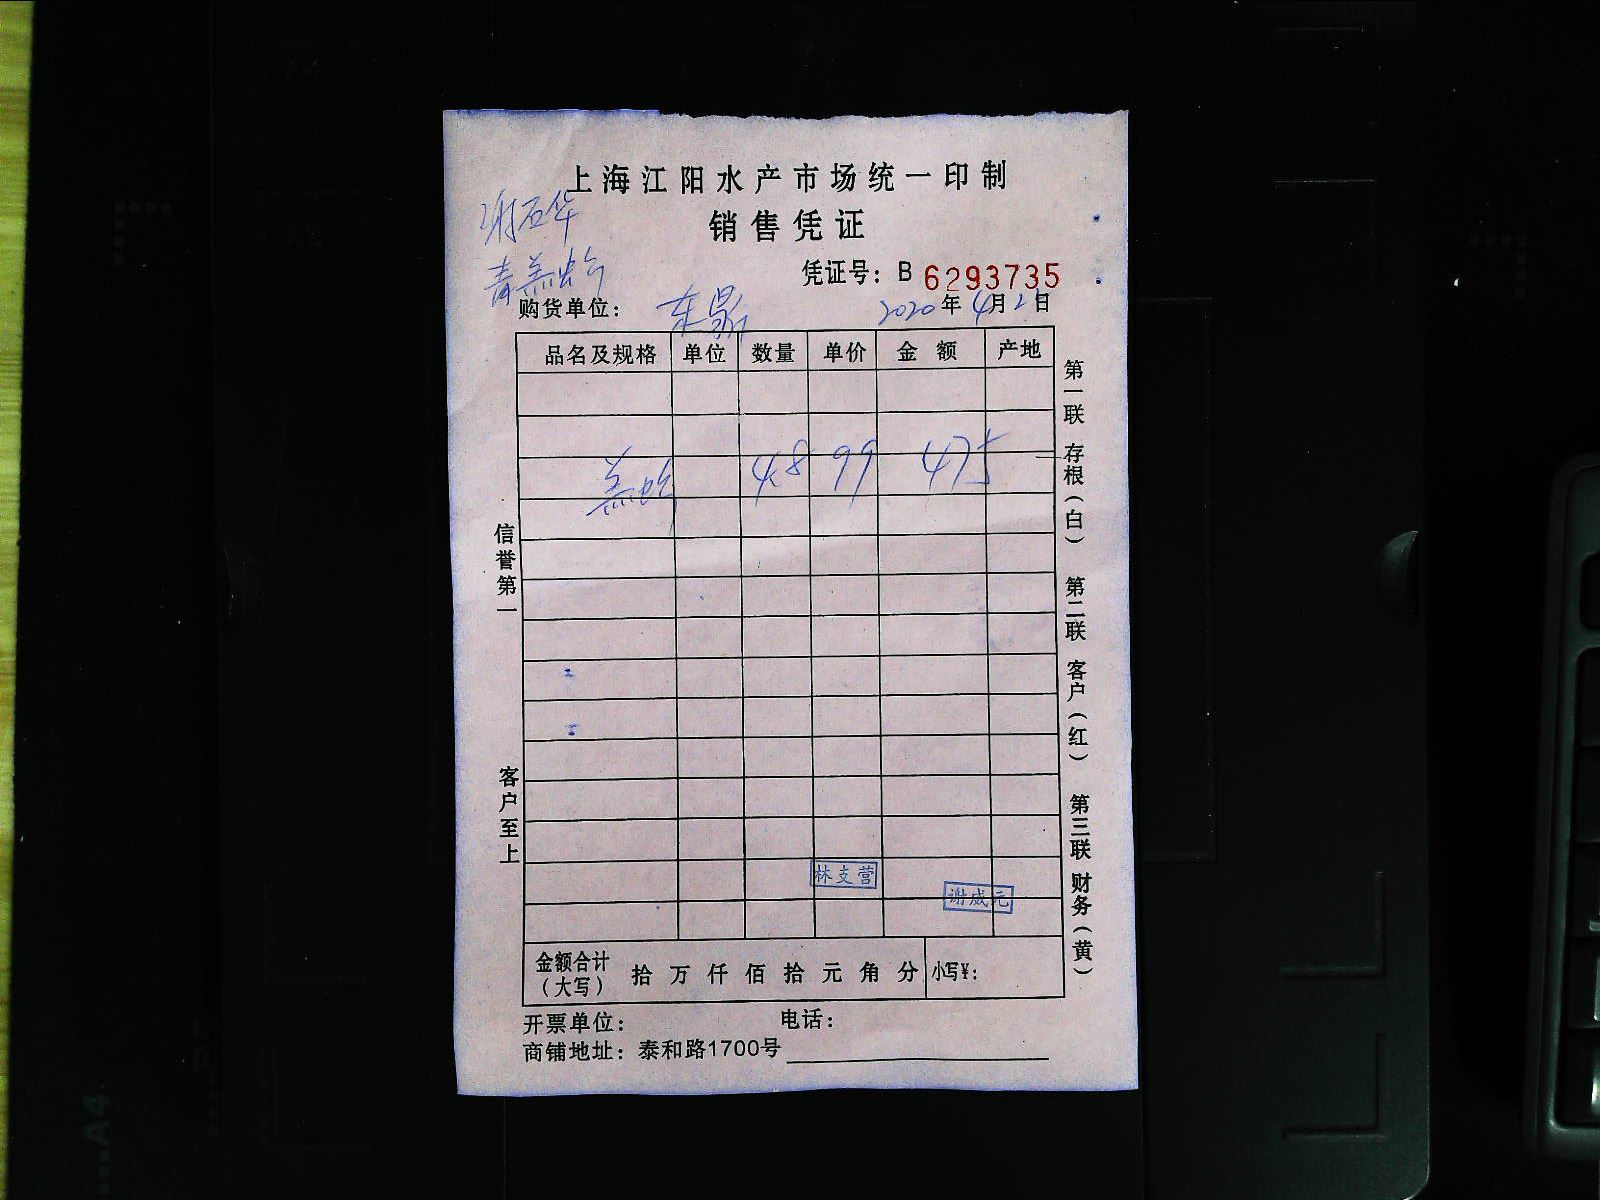 上海江阳水产市场统一印制
销售凭证
谢石华
青羔蛤
凭证号：B 6293735
购货单位：东
2020年4月2日
品名及规格 单位 数量 单价 金额 产地
羔蛤 4.8 99 475
信誉第一
客户至上
第一联 存根（白） 第二联 客户（红） 第三联 财务（黄）
林支营
谢成元
金额合计（大写） 拾 万 仟 佰 拾 元 角 分 小写¥：
开票单位： 电话：
商铺地址：泰和路1700号
A4